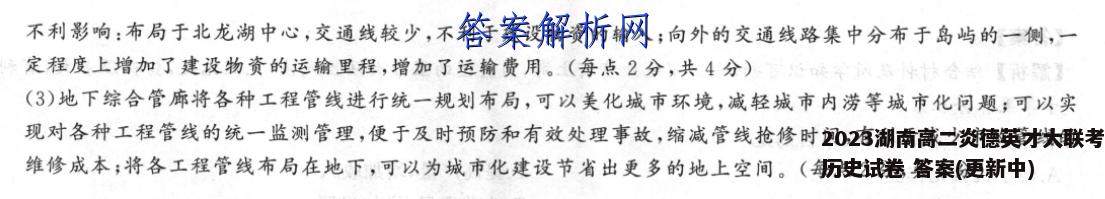 不利影响:布局于北龙湖中心,交通线较少,不利于建设物资的输入;向外的交通线路集中分布于岛屿的一侧,一
答案解析网
定程度上增加了建设物资的运输里程,增加了运输费用。(每点2分,共4分)
(3)地下综合管廊将各种工程管线进行统一规划布局,可以美化城市环境,减轻城市内涝等城市化问题;可以实
现对各种工程管线的统一监测管理,便于及时预防和有效处理事故,缩减管线抢修时
2023湖南高二炎德英才大联考
维修成本;将各工程管线布局在地下,可以为城市化建设节省出更多的地上空间。(每
历史试卷 答案(更新中)